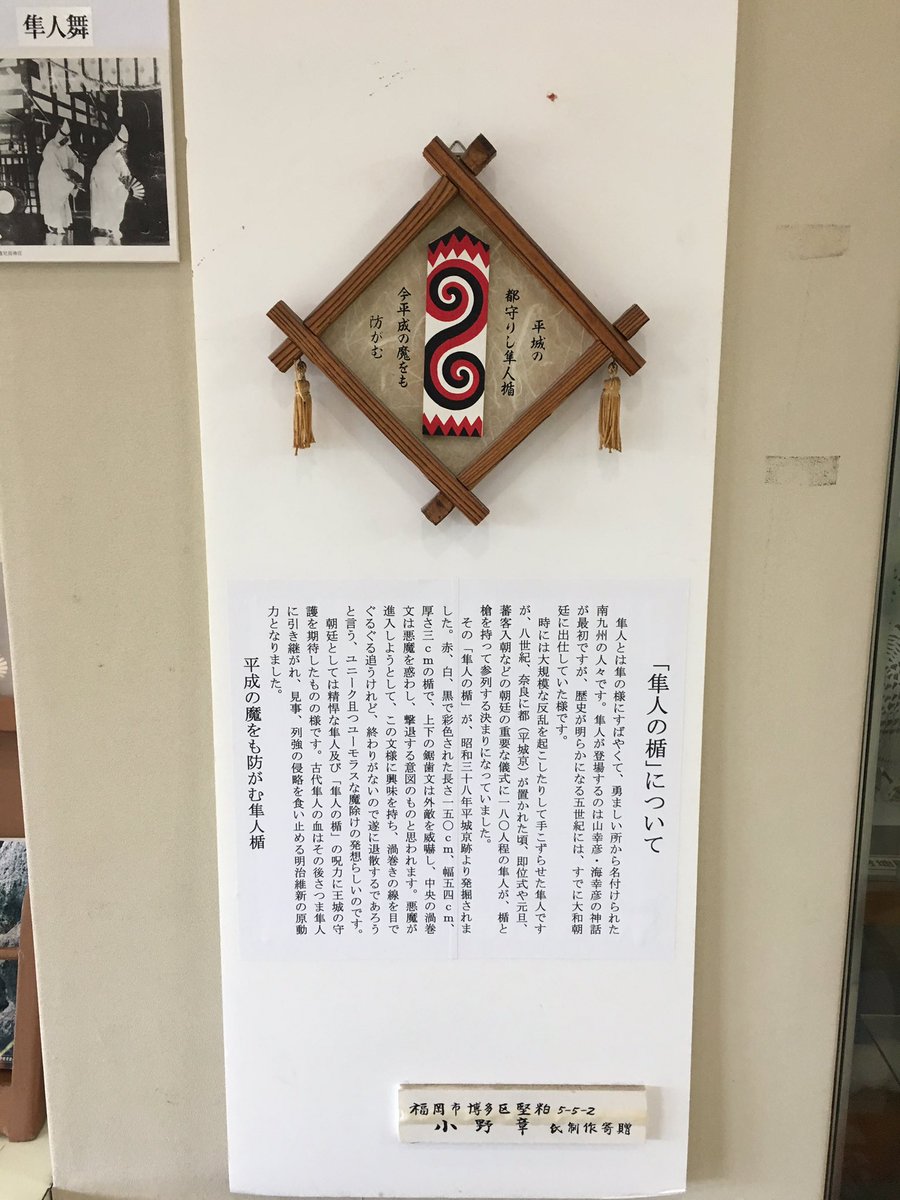 隼人舞
平城の
都守りし隼人楯
今平成の魔をも
防がむ
「隼人の楯」について
隼人とは隼の様にすばやくて、勇ましい所から名付けられた
南九州の人々です。隼人が登場するのは山幸彦・海幸彦の神話
が最初ですが、歴史が明らかになる五世紀には、すでに大和朝
廷に出仕していた様です。
時には大規模な反乱を起こしたりして手こずらせた隼人です
が、八世紀、奈良に都（平城京）が置かれた頃、即位式や元旦、
蕃客入朝などの朝廷の重要な儀式に一八〇人程の隼人が、楯と
槍を持って参列する決まりになっていました。
その「隼人の楯」が、昭和三十八年平城京跡より発掘されま
した。赤、白、黒で彩色された長さ一五〇cm、幅五四cm、
厚さ三cmの楯で、上下の鋸歯文は外敵を威嚇し、中央の渦巻
文は悪魔を惑わし、撃退する意図のものと思われます。悪魔が
進入しようとして、この文様に興味を持ち、渦巻きの線を目で
ぐるぐる追うけれど、終わりがないので遂に退散するであろう
と言う、ユニーク且つユーモラスな魔除けの発想らしいのです。
朝廷としては精悍な隼人及び「隼人の楯」の呪力に王城の守
護を期待したものの様です。古代隼人の血はその後さつま隼人
に引き継がれ、見事、列強の侵略を食い止める明治維新の原動
力となりました。
平成の魔をも防がむ隼人楯
福岡市博多区堅粕5-5-2
小野章 氏制作寄贈